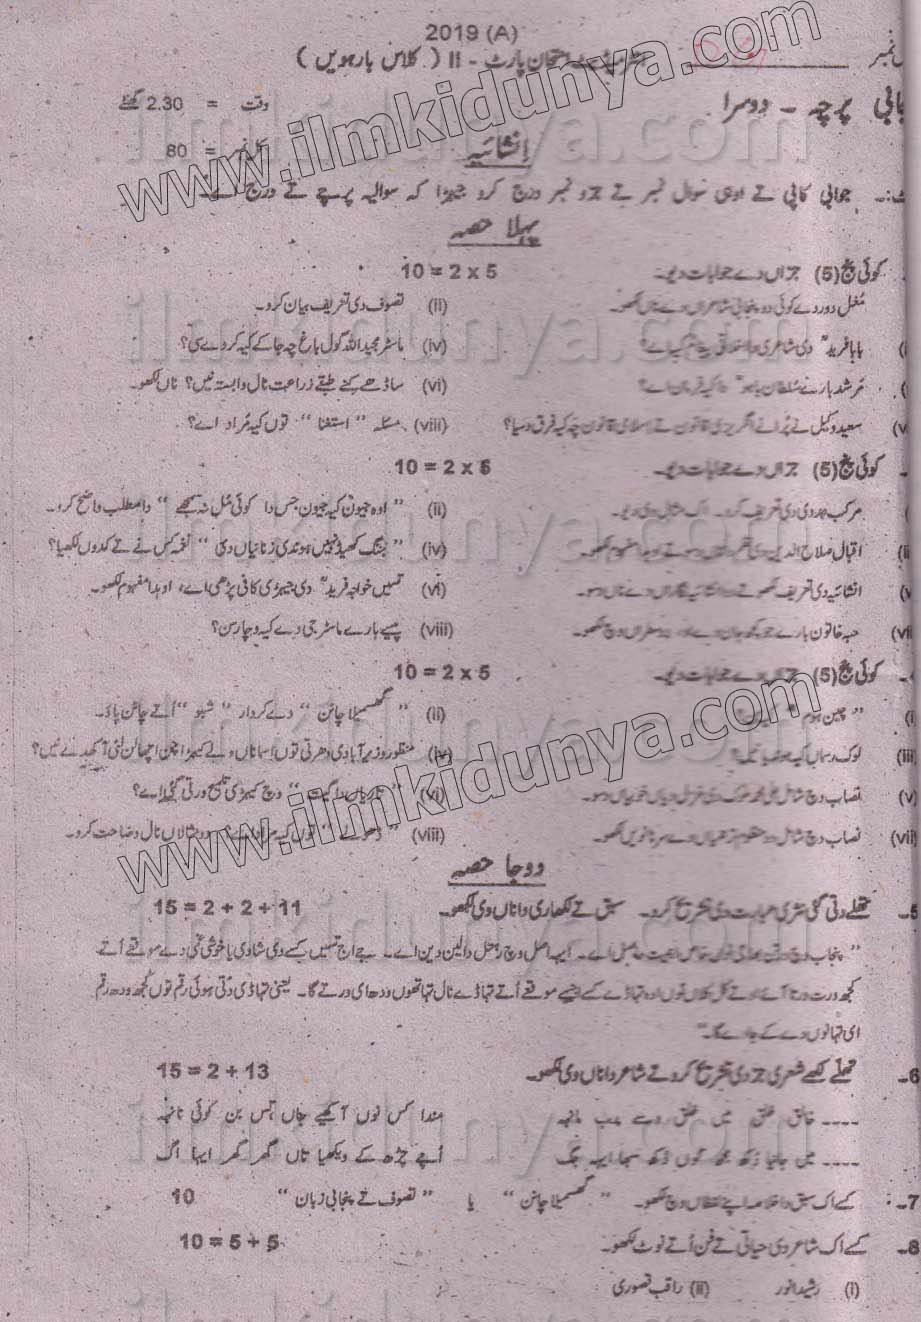 2019 (A)
نمبر
امتحان پارٹ - II ( کلاس بارہویں )
پرچہ - دوسرا وقت = 2.30 گھنٹے
انشائیہ نمبر = 80
جوابی کاپی تے اوہی سوال نمبر تے جزو نمبر درج کرو جیہڑا کہ سوالیہ پرچے تے درج اے۔
پہلا حصہ
کوئی پنج (5) جزاں دے جوابات دیو۔ 10 = 2 x 5
مغل دور دے کوئی دو پنجابی شاعراں دے ناں لکھو۔ (ii) تصوف دی تعریف بیان کرو۔
بابا فریدؒ دی شاعری دا اخلاقی پیغام کیہ اے؟ (iv) ماسٹر مجید اللہ گول باغ چہ جا کے کیہ کردے سی؟
مرشد بارے سلطان باہوؒ دا کیہ فرمان اے؟ (vi) ساڈے کنے طبقے زراعت نال وابستہ نیں؟ ناں لکھو۔
سعید وکیل نے پرانے انگریزی قانون تے اسلامی قانون چہ کیہ فرق دسیا؟ (viii) مسئلہ " استغنا " توں کیہ مراد اے؟
کوئی پنج (5) جزاں دے جوابات دیو۔ 10 = 2 x 5
مرکب عددی دی تعریف کرو۔ اک مثال وی دیو۔ (ii) " اوہ جیون کیہ جیون جس دا کوئی مُل نہ سمجھے " دا مطلب واضح کرو۔
اقبال صلاح الدین دی نظم دا ناں دسو تے اوہدا مفہوم لکھو۔ (iv) " جنگ کھیڈ نہیں ہوندی زنانیاں دی " نغمہ کس نے تے کدوں لکھیا؟
انشائیہ دی تعریف لکھو تے دو انشائیہ نگاراں دے ناں دسو۔ (vi) تسیں خواجہ فریدؒ دی جیہڑی کافی پڑھی اے، اوہدا مفہوم لکھو۔
حبہ خاتون بارے جو کجھ جان دے او، دو سطراں وچ لکھو۔ (viii) پیسے بارے ماسٹر جی دے کیہ وچار سن؟
کوئی پنج (5) جزاں دے جوابات دیو۔ 10 = 2 x 5
(i) " چین ہوم " (ii) " گھسمیلا چانن " دے کردار " شبو " اُتے چانن پاؤ۔
(iii) لوک رسماں کیہ ہوندیاں نیں؟ (iv) منظور وزیر آبادی دھرتی توں اسماناں دلے کیہڑا چن اچھالن لئی آکھیدے نیں؟
(v) نصاب وچ شامل دی غزل دیاں خوبیاں دسو۔ (vi) " تاریاں دا گیت " وچ کیہڑی تلمیح ورتی گئی اے؟
(vii) نصاب وچ شامل دو منظوم ترجمیاں دے سرنانویں لکھو۔ (viii) " ڈھولے " توں کیہ مراد اے؟ دو مثالاں نال وضاحت کرو۔
دوجا حصہ
5۔ تھلے دتی گئی نثری عبارت دی تشریح کرو۔ سبق تے لکھاری دا ناں وی لکھو۔ 15 = 2 + 2 + 11
" پنجاب وچ ورتن بھانجی نوں خاص اہمیت حاصل اے۔ ایہہ اصل وچ رَجل دا لین دین اے۔ جے اج تسیں کسے دی شادی یا خوشی غمی دے موقعے اُتے
کجھ ورت ورتا آئے او تے کل کلاں نوں اوہ تہاڈے کسے ایسے موقعے اُتے تہاڈے نال تہاتھوں ودھ ای ورتے گا۔ یعنی تہاڈی دتی ہوئی رقم توں کجھ ودھ رقم
ای تہانوں دے کے جاوے گا۔"
6۔ تھلے لکھے شعری جز دی تشریح کرو تے شاعر دا ناں وی لکھو۔ 15 = 2 + 13
---- خالق خلق میں خلق وسے رب مانہہ مندا کس نوں آکھیے جاں تس بن کوئی نانہہ
---- میں جانیا دُکھ مجھ کوں دُکھ سبھا ایہہ جگ اُچے چڑھ کے ویکھیا تاں گھر گھر ایہا اگ
7۔ کسے اک سبق دا خلاصہ اپنے لفظاں وچ لکھو۔ " گھسمیلا چانن " یا " تصوف تے پنجابی زبان " 10
8۔ کسے اک شاعر دی حیاتی تے فن اُتے نوٹ لکھو۔ 10 = 5 + 5
(i) رشید انور (ii) راقب قصوری
www.ilmkidunya.com
www.ilmkidunya.com